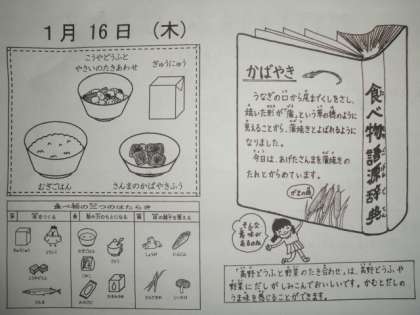 1月 16日 (木)
こうやどうふと
やさいのたきあわせ
ぎゅうにゅう
むぎごはん
さんまのかばやきふう
食べ物の三つのはたらき
かばやき
うなぎの口から尾まで くしをさし、
焼いた形が「蒲」という草の穂のように
見えることから、蒲焼きとよばれるように
なりました。
今日は、あげたさんまを蒲焼きの
たれとからめています。
がまの穂
食べ物語源辞典
そんな
意味が
あるのね
「高野どうふと野菜のたき合わせ」は、高野どうふや
野菜にだしがしみこんでおいしいです。かむとだしの
うま味を感じることができます。